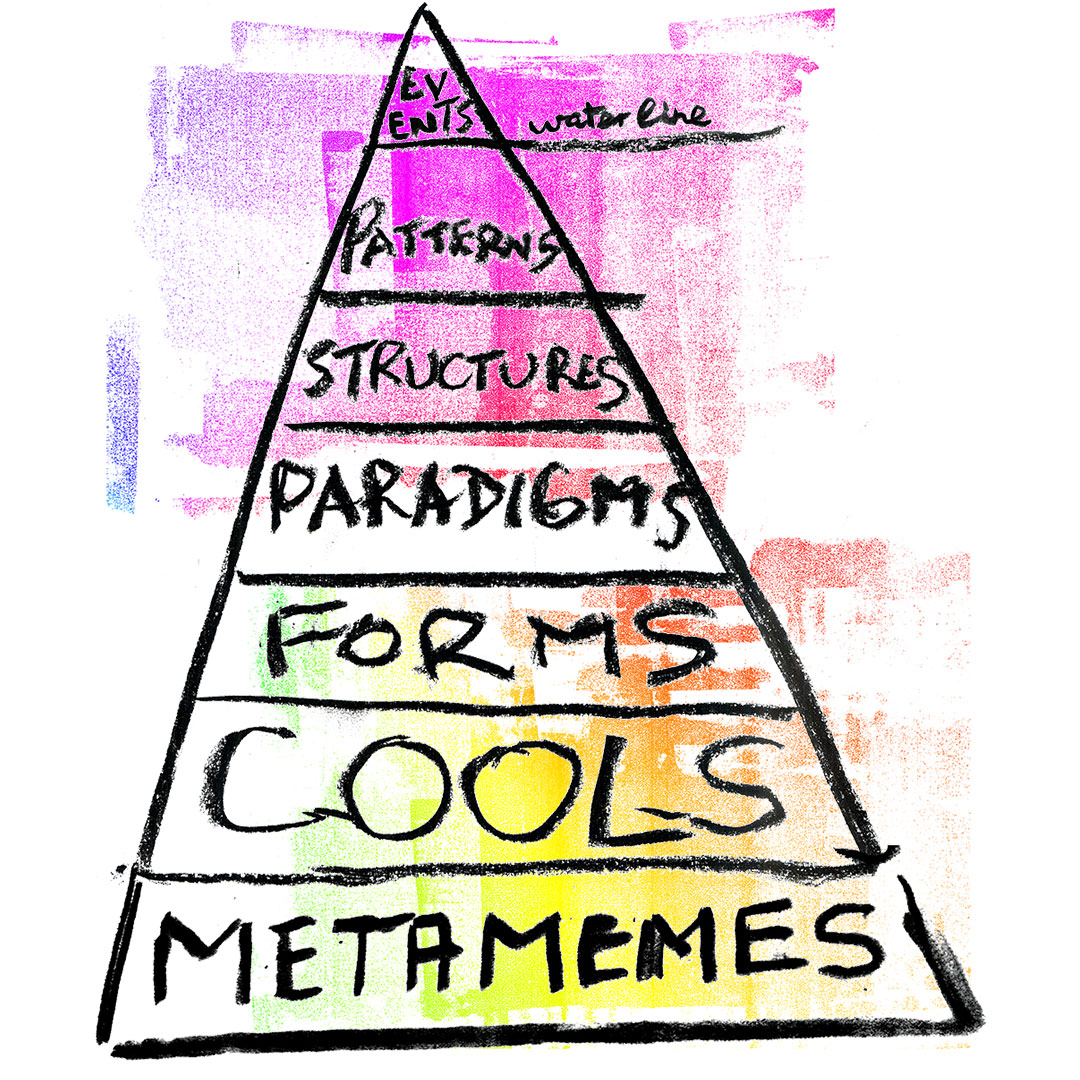 EV
ENTS
water line
PATTERNS
STRUCTURES
PARADIGMS
FORMS
COOLS
METAMEMES